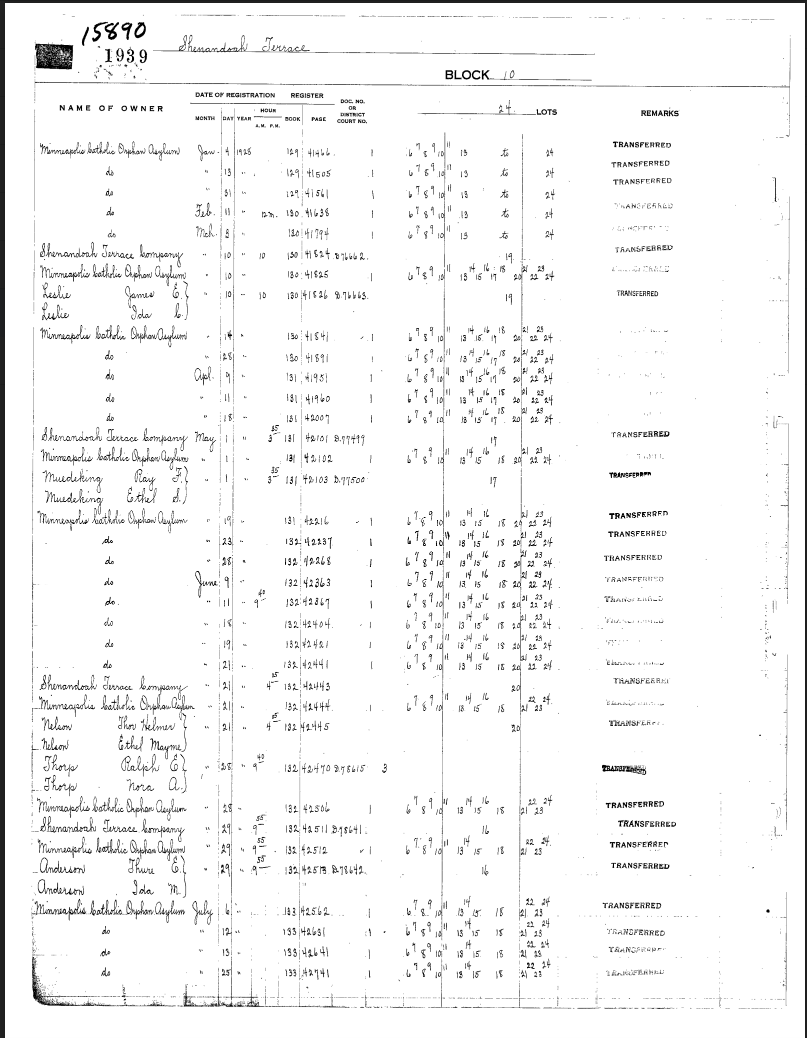 15890
1939
Shenandoah Terrace
BLOCK 10
NAME OF OWNER DATE OF REGISTRATION REGISTER DOC. NO. OR DISTRICT COURT NO. 24 LOTS REMARKS
MONTH DAY YEAR HOUR A.M. P.M. BOOK PAGE
Minneapolis Catholic Orphan Asylum Jan. 4 1928 129 41466 1 6 7 8 9 10 11 13 to 24 TRANSFERRED
do " 13 " 129 41505 1 6 7 8 9 10 11 13 to 24 TRANSFERRED
do " 31 " 129 41561 1 6 7 8 9 10 11 13 to 24 TRANSFERRED
do Feb. 11 " 12 m. 130 41638 1 6 7 8 9 10 11 13 to 24 TRANSFERRED
do Mch. 3 " 130 41794 1 6 7 8 9 10 11 13 to 24
Shenandoah Terrace Company " 10 " 10 130 41824 D.76662 19 TRANSFERRED
Minneapolis Catholic Orphan Asylum " 10 " 130 41825 1 6 7 8 9 10 11 13 14 15 16 17 18 20 21 22 23 24
Leslie James E. " 10 " 10 130 41826 D.76663 19 TRANSFERRED
Leslie Ida C.
Minneapolis Catholic Orphan Asylum " 14 " 130 41841 1 6 7 8 9 10 11 13 14 15 16 17 18 20 21 22 23 24
do " 28 " 130 41891 1 6 7 8 9 10 11 13 14 15 16 17 18 20 21 22 23 24
do Apl. 9 " 131 41951 1 6 7 8 9 10 11 13 14 15 16 17 18 20 21 22 23 24
do " 11 " 131 41960 1 6 7 8 9 10 11 13 14 15 16 17 18 20 21 22 23 24
do " 18 " 131 42007 1 6 7 8 9 10 11 13 14 15 16 17 18 20 21 22 23 24
Shenandoah Terrace Company May 1 " 3 35 131 42101 D.77499 17 TRANSFERRED
Minneapolis Catholic Orphan Asylum " 1 " 131 42102 1 6 7 8 9 10 11 13 14 15 16 18 20 21 22 23 24
Muedeking Ray F. " 1 " 3 35 131 42103 D.77500 17 TRANSFERRED
Muedeking Ethel S.
Minneapolis Catholic Orphan Asylum " 19 " 131 42216 1 6 7 8 9 10 11 13 14 15 16 18 20 21 22 23 24 TRANSFERRED
do " 23 " 132 42237 1 6 7 8 9 10 11 13 14 15 16 18 20 21 22 23 24 TRANSFERRED
do " 28 " 132 42268 1 6 7 8 9 10 11 13 14 15 16 18 20 21 22 23 24 TRANSFERRED
do June 9 " 132 42363 1 6 7 8 9 10 11 13 14 15 16 18 20 21 22 23 24 TRANSFERRED
do. " 11 " 9 40 132 42367 1 6 7 8 9 10 11 13 14 15 16 18 20 21 22 23 24 TRANSFERRED
do " 18 " 132 42404 1 6 7 8 9 10 11 13 14 15 16 18 20 21 22 23 24 TRANSFERRED
do " 19 " 132 42421 1 6 7 8 9 10 11 13 14 15 16 18 20 21 22 23 24
do " 21 " 132 42441 1 6 7 8 9 10 11 13 14 15 16 18 20 21 22 23 24 TRANSFERRED
Shenandoah Terrace Company " 21 " 4 132 42443 20 TRANSFERRED
Minneapolis Catholic Orphan Asylum " 21 " 132 42444 1 6 7 8 9 10 11 13 14 15 16 18 21 22 23 24 TRANSFERRED
Nelson Thor Helmer " 21 " 4 132 42445 20 TRANSFERRED
Nelson Ethel Mayme
Thorp Ralph E. " 28 " 9 40 132 42470 D.78615 3 TRANSFERRED
Thorp Nora A.
Minneapolis Catholic Orphan Asylum " 28 " 132 42506 1 6 7 8 9 10 11 13 14 15 16 18 21 22 23 24 TRANSFERRED
Shenandoah Terrace Company " 29 " 9 55 132 42511 D.78641 16 TRANSFERRED
Minneapolis Catholic Orphan Asylum " 29 " 9 55 132 42512 1 6 7 8 9 10 11 13 14 15 18 21 22 23 24 TRANSFERRED
Anderson Thure E. " 29 " 9 55 132 42513 D.78642 16 TRANSFERRED
Anderson Ida M.
Minneapolis Catholic Orphan Asylum July 6 " 133 42562 1 6 7 8 9 10 11 13 14 15 18 21 22 23 24 TRANSFERRED
do " 12 " 133 42631 1 6 7 8 9 10 11 13 14 15 18 21 22 23 24 TRANSFERRED
do " 13 " 133 42641 1 6 7 8 9 10 11 13 14 15 18 21 22 23 24 TRANSFERRED
do " 25 " 133 42741 1 6 7 8 9 10 11 13 14 15 18 21 22 23 24 TRANSFERRED